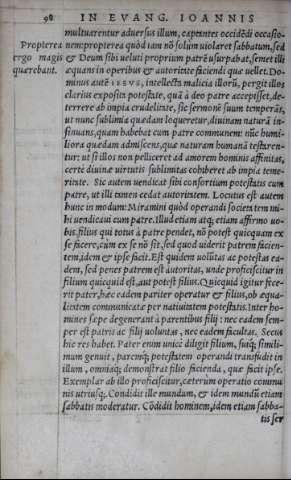 98 IN EVANG. IOANNIS
multuarentur aduersus illum, captantes occidẽdi occasio-
Propterea
nem: propterea quòd iam nõ solũm uiolaret sabbatum, sed
ergo magis
& Deum sibi ueluti proprium patrẽ usurpabat, semet illi
quærebant.
æquans in operibus & autoritate faciendi quæ uellet. Do-
minus autẽ IESVS, intellecta malicia illorũ, pergit illos
clarius exposita potestate, quã à deo patre accepisset, de-
terrere ab impia crudelitate, sic sermonẽ suum temperãs,
ut nunc sublimia quædam loqueretur, diuinam naturã in-
sinuans, quam habebat cum patre communem: nũc humi-
liora quædam admiscens, quæ naturam humanã testaren-
tur: ut si illos non pelliceret ad amorem hominis affinitas,
certè diuinæ uirtutis sublimitas cohiberet ab impia teme-
ritate. Sic autem uendicat sibi consortium potestatis cum
patre, ut illi tamen cedat autoritatem. Locutus est autem
hunc in modum: Miramini quòd operandi societatem mi-
hi uendicaui cum patre. Illud etiam atq; etiam affirmo uo-
bis, filius qui totus à patre pendet, nõ potest quicquam ex
se facere, cùm ex se nõ sit, sed quod uiderit patrem facien-
tem, idem & ipse facit. Est quidem uolũtas ac potestas ea-
dem, sed penes patrem est autoritas, unde proficiscitur in
filium quicquid est, aut potest filius. Quicquid igitur fece-
rit pater, hæc eadem pariter operatur & filius, ob æqua-
litatem communicatæ per natiuitatem potestatis. Inter ho-
mines sæpe degenerant à parentibus filij: nec eadem sem-
per est patris ac filij uoluntas, nec eadem facultas. Secus
hic res habet. Pater enim unicè diligit filium, suiq; simili-
mum genuit, paremq; potestatem operandi transfudit in
illum, omniaq; demonstrat filio facienda, quæ facit ipse.
Exemplar ab illo proficiscitur, cæterùm operatio commu
nis utriusq;. Condidit ille mundum, & idem mundũ etiam
sabbatis moderatur. Cõdidit hominem, idem etiam sabba-
tis ser